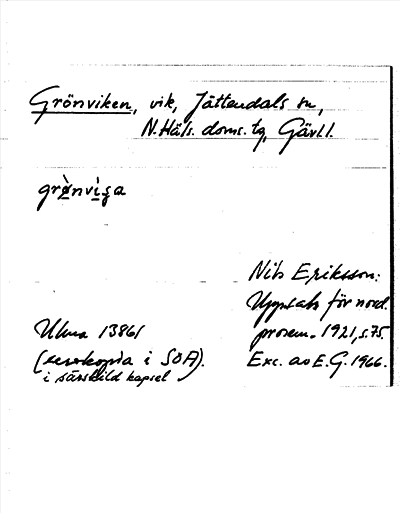 Grönviken, vik, Jättendals sn,
N.Häls. doms.tg, Gävl.l.
grònviga
Nils Eriksson:
Uppsats för nord.
prosem. 1921, s.75.
Exc. av E.G. 1966.
Uluma 13861
(xerokopia i SOA).
i särskild kapsel